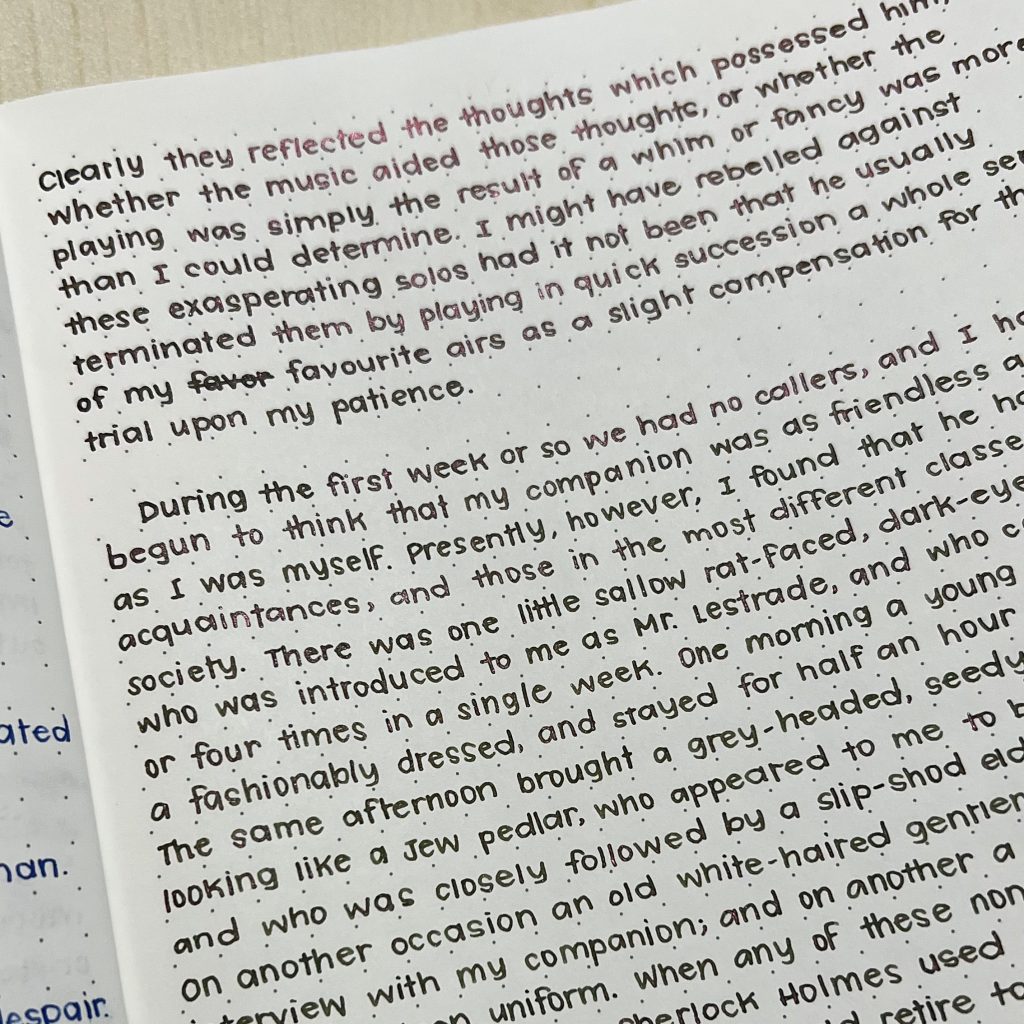 Clearly they reflected the thoughts which possessed him,
whether the music aided those thoughts, or whether the
playing was simply the result of a whim or fancy was more
than I could determine. I might have rebelled against
these exasperating solos had it not been that he usually
terminated them by playing in quick succession a whole
of my favor favourite airs as a slight compensation for
trial upon my patience.
During the first week or so we had no callers, and I
begun to think that my companion was as friendless
as I was myself. Presently, however, I found that he
acquaintances, and those in the most different
society. There was one little sallow rat-faced,
who was introduced to me as Mr. Lestrade, and who
or four times in a single week. One morning a young
a fashionably dressed, and stayed for half an hour
The same afternoon brought a grey-headed, seedy
looking like a Jew pedlar, who appeared to me to
and who was closely followed by a slip-shod
on another occasion an old white-haired
with my companion; and on another a
uniform. When any of these
Holmes used
retire to
ated
an.
espair.